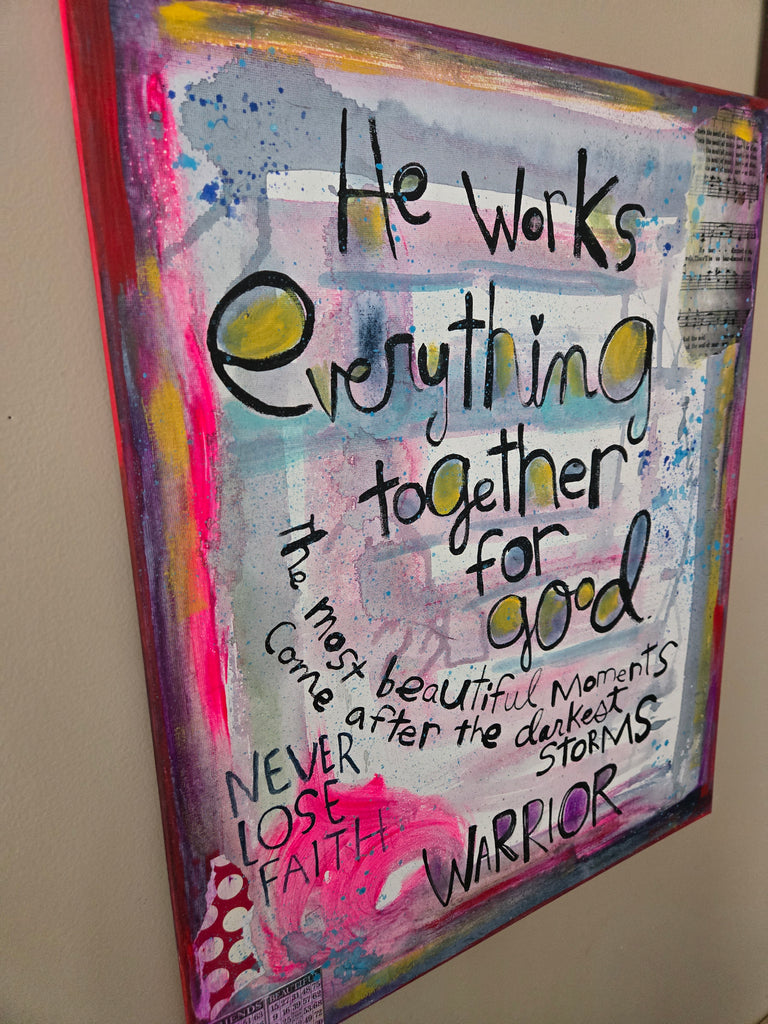 He works
everything
together
for
good
The most beautiful moments
come after the darkest
STORMS
NEVER
LOSE
FAITH
WARRIOR
BEAUTIFUL